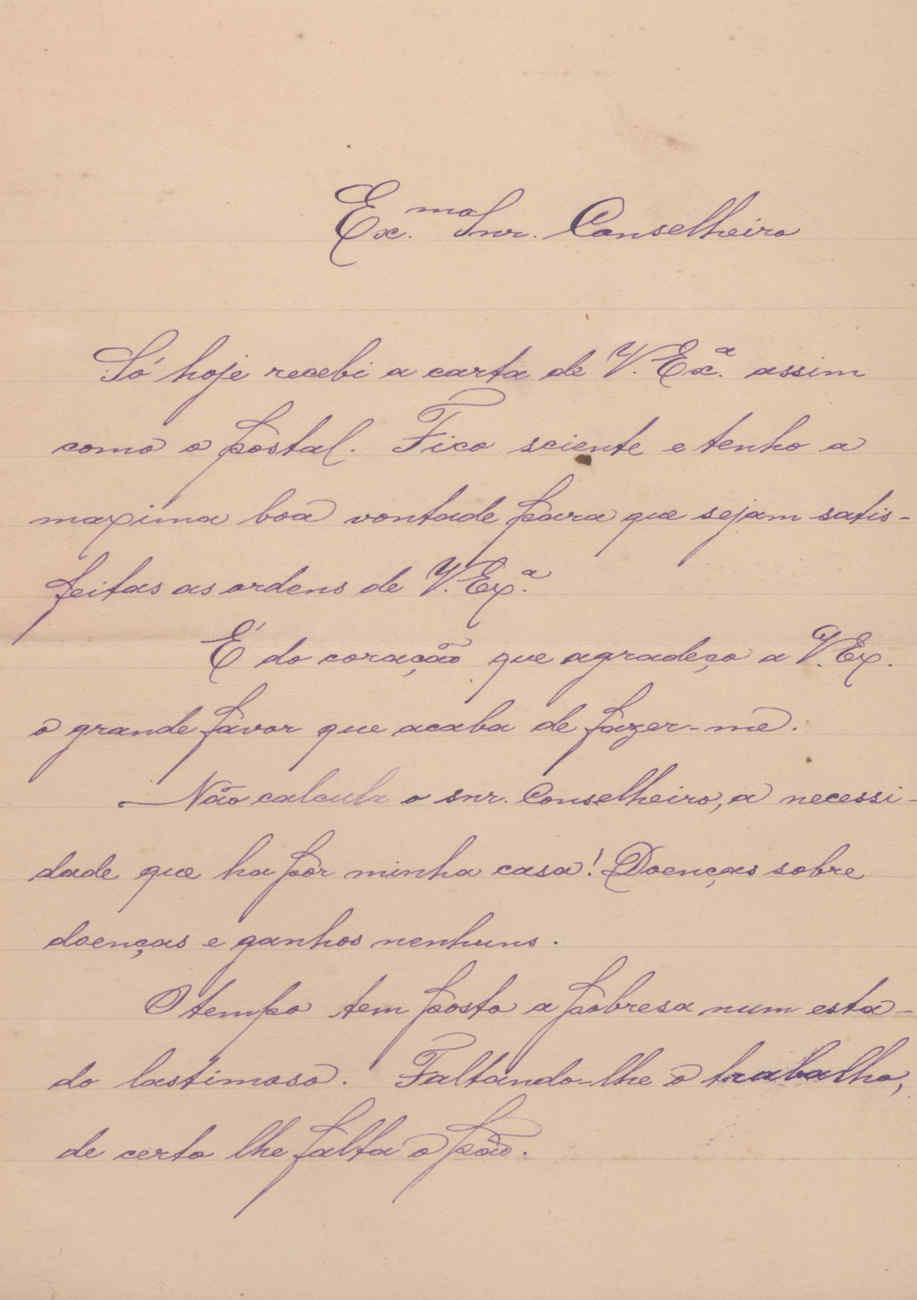 Ex.mo Snr. Conselheiro
Só hoje recebi a carta de V. Ex.a assim
como o postal. Fico sciente e tenho a
maxima boa vontade para que sejam satis-
feitas as ordens de V. Ex.a
É do coração que agradeço a V. Ex.
o grande favor que acaba de fazer-me.
Não calcula o snr. Conselheiro, a necessi-
dade que ha por minha casa! Doenças sobre
doenças e ganhos nenhuns.
O tempo tem posto a pobresa num esta-
do lastimoso. Faltando-lhe o trabalho,
de certo lhe falta o pão.